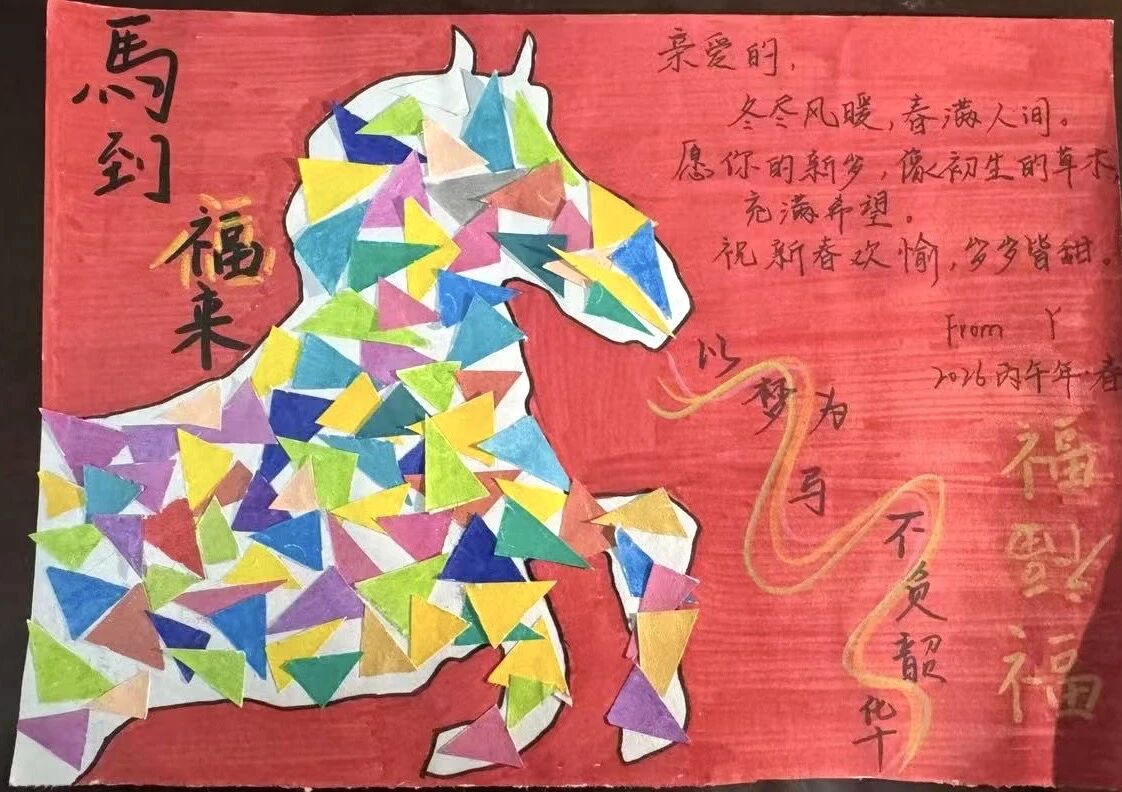 馬到
福来
亲爱的,
冬尽风暖,春满人间。
愿你的新岁,像初生的草木,
充满希望。
祝新春欢愉,岁岁皆甜。
From Y
2026丙午年·春
以梦为马
不负韶华
福
福
福
福